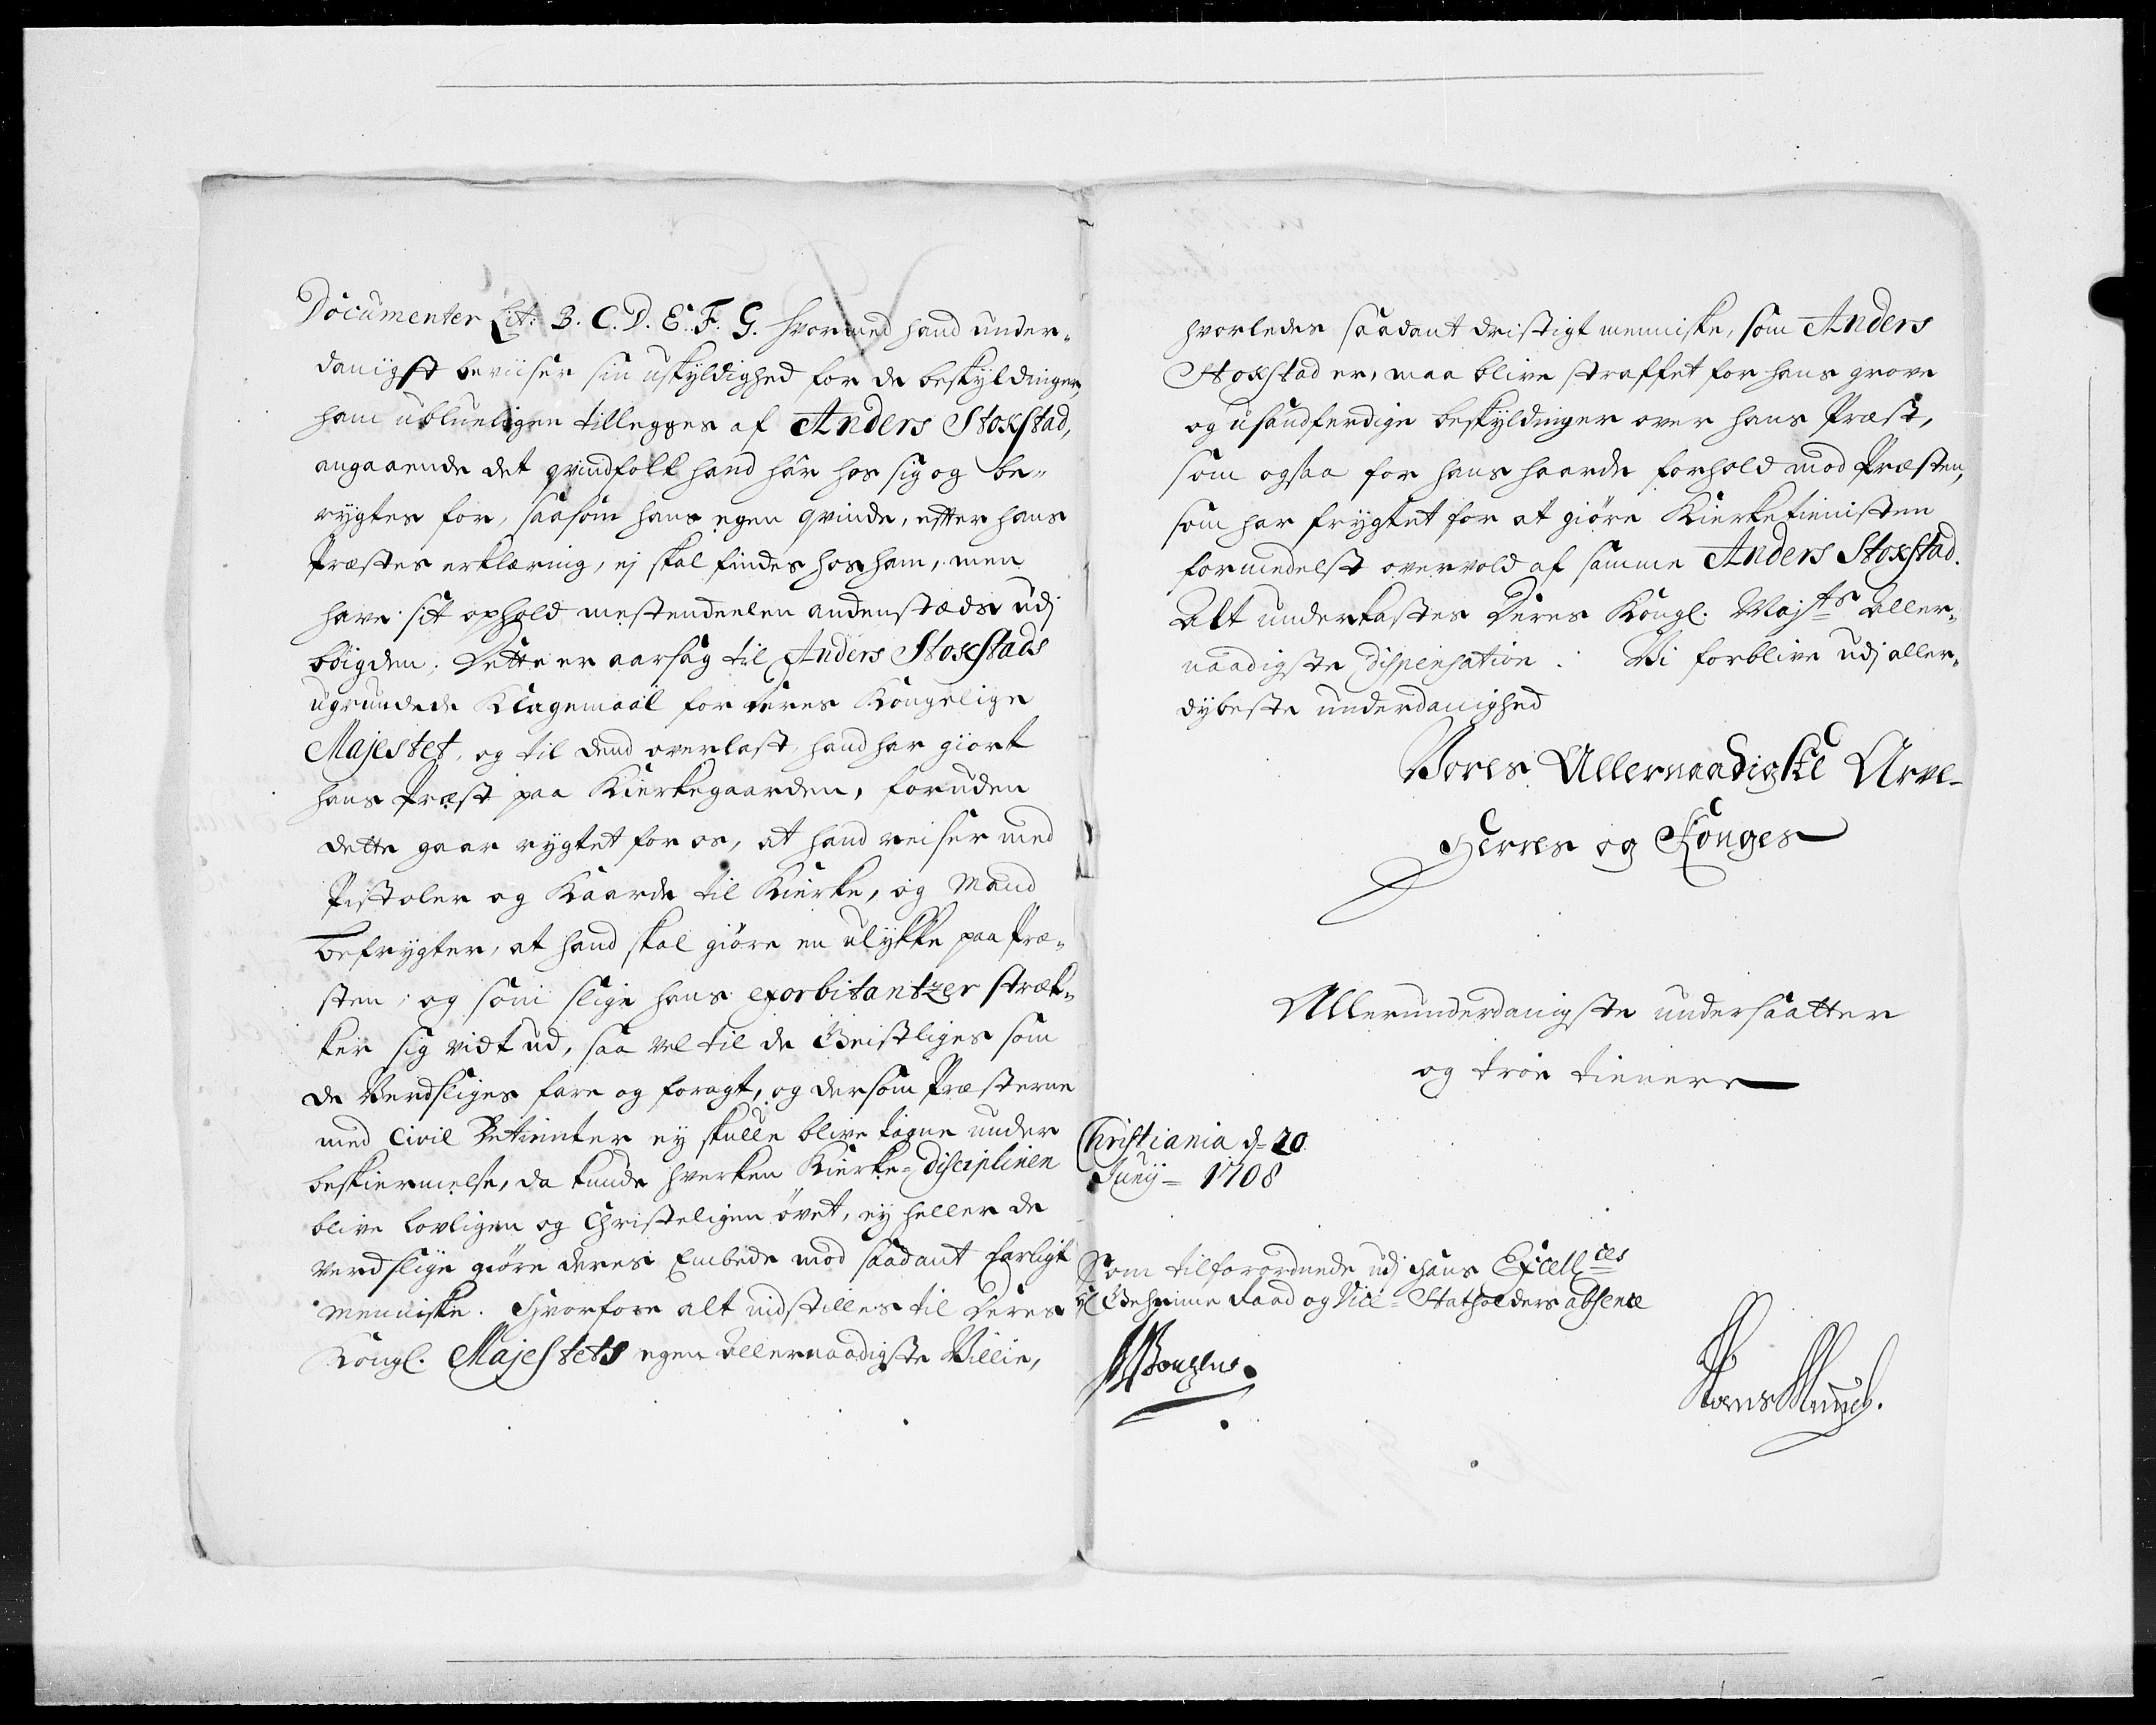 Documenter Lit: B. C. D. E. F. G. hvormed hand under-
danigst beviiser sin uskyldighed for de beskyldinger,
ham ublueligen tillegges af Anders Stoxstad,
angaaende det qvindfolk hand har hos sig og be-
rygtes for, saasom hans egen qvinde, efter hans
Præstes erklæring, ej skal findes hos ham, men
have sit ophold mestendeelen andenstæds udj
böigden; Dette er aarsag til Anders Stoxstads
ugrundede Klagemaal for deres Kongelige
Majestet, og til dend overlast, hand har giort
hans Præst paa Kierkegaarden, foruden
dette gaar rygtet for os, at hand reiser med
Pistoler og Kaarde til Kierke, og Mand
befrygter, at hand skal giöre en ulykke paa Præ-
sten; og som slige hans exorbitantzer stræk-
ker sig vidt ud, saa vel til de Geistliges som
de Verdsliges fare og foragt, og dersom Præsterne
med Civil Betienter ey skulle blive tagne under
beskiermelse, da kunde hverken Kierke-Disciplinen
blive lovligen og Christeligen övet, ey heller de
verdslige giöre deres Embede mod saadant farligt
menniske. Hvorfore alt indstilles til Deres
Kongl. Majestets egen allernaadigste Villie,
hvorledes saadant dristigt menniske, som Anders
Stoxstad er, maa blive straffet for hans grove
og usandferdige beskyldinger over hans Præst,
som ogsaa for hans haarde forhold mod Præsten,
som har frygtet for at giöre Kierketienisten
formedelst overvold af samme Anders Stoxstad.
Alt underkastes Deres Kongl. Majts aller-
naadigste Dispensation. Vi forblive udj aller-
dybeste underdanighed
Vores Allernaadigste Arve-
Herres og Konges
Allerunderdanigste undersaatter
og troe tienere
Christiania d= 20
Junij= 1708
Som tilforordnede udj Hans Excellces
Hl Geheime Raad og Vice-Statholders absence
Hans Munch.